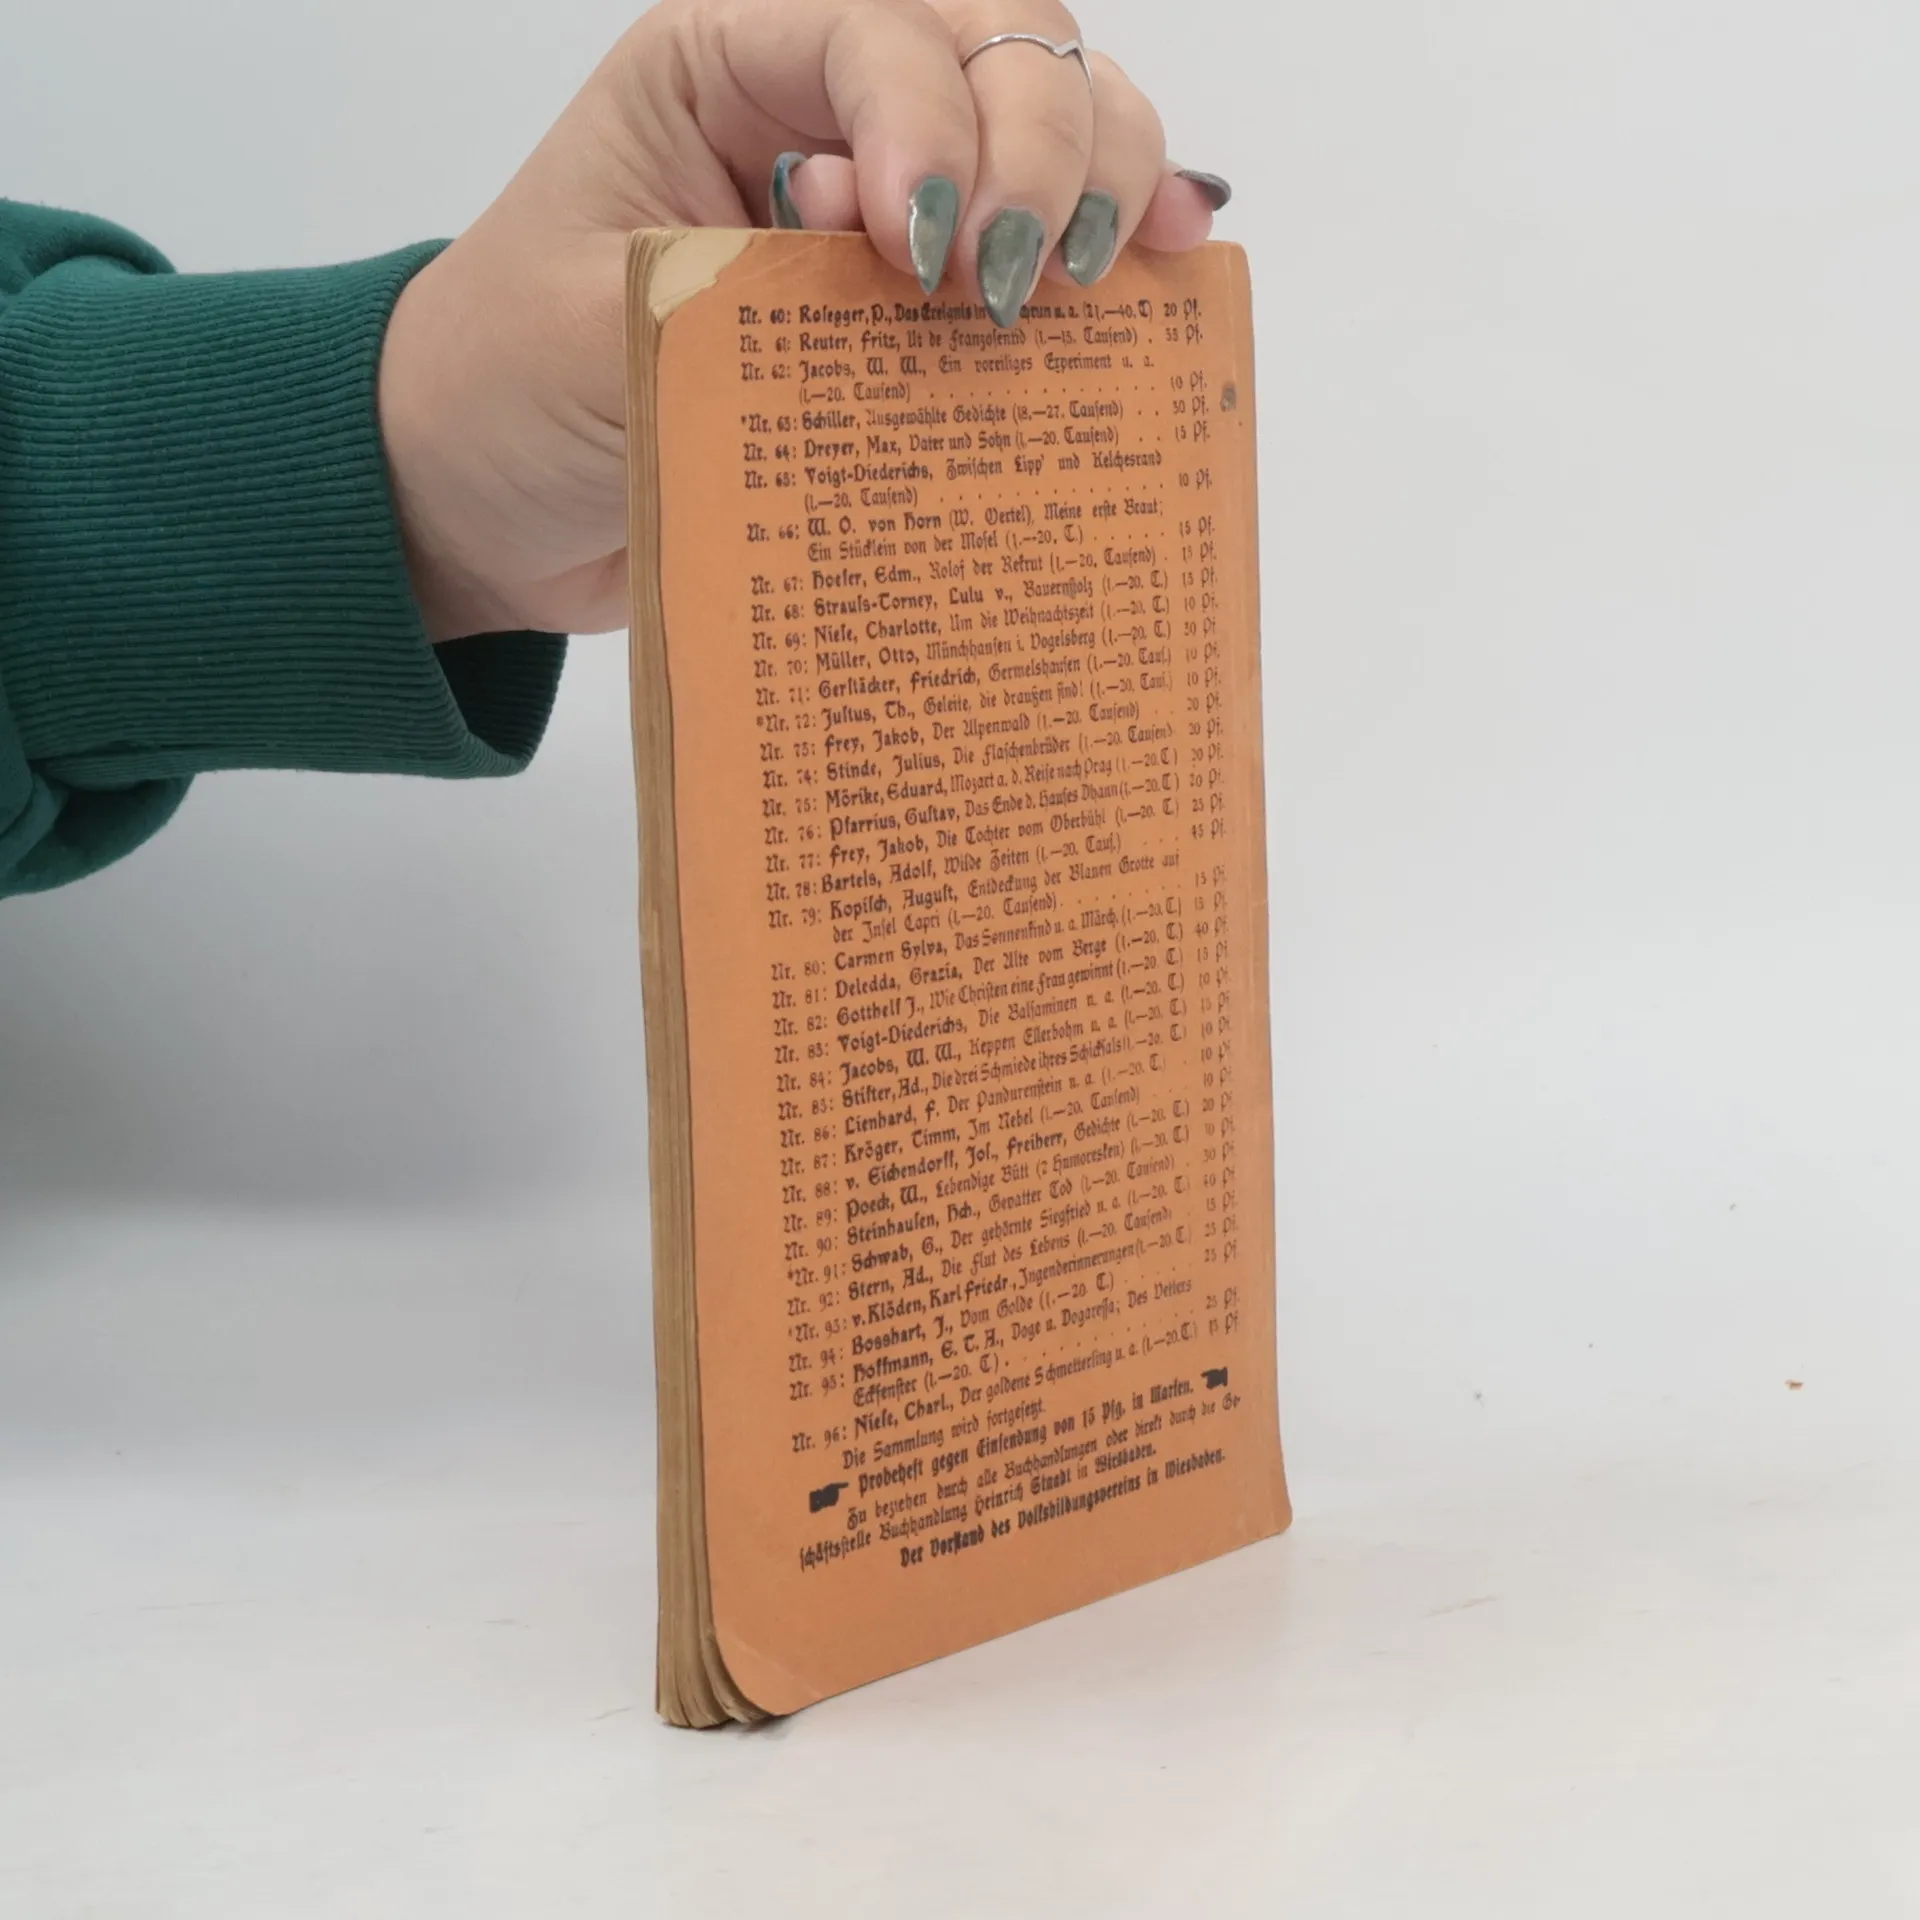 Nr. 60: Rosegger, P., Das Ereignis in u. a. (21.—40. T) 20 Pf.
Nr. 61: Reuter, Fritz, Ut de Franzosentid (1.—15. Tausend) . 35 Pf.
Nr. 62: Jacobs, W. W., Ein voreiliges Experiment u. a.
(1.—20. Tausend) . . . . . . . . . . . 10 Pf.
*Nr. 63: Schiller, Ausgewählte Gedichte (18.—27. Tausend) . . 30 Pf.
Nr. 64: Dreyer, Max, Vater und Sohn (1.—20. Tausend) . . 15 Pf.
Nr. 65: Voigt-Diederichs, Zwischen Lipp' und Kelchesrand
(1.—20. Tausend) . . . . . . . . . . . 10 Pf.
Nr. 66: W. O. von Horn (W. Oertel), Meine erste Braut;
Ein Stücklein von der Mosel (1.—20. T.) . . . . . 15 Pf.
Nr. 67: Hoefer, Edm., Rolof der Rekrut (1.—20. Tausend) . 15 Pf.
Nr. 68: Strauss-Torney, Lulu v., Bauernstolz (1.—20. T.) 15 Pf.
Nr. 69: Niese, Charlotte, Um die Weihnachtszeit (1.—20. T.) 10 Pf.
Nr. 70: Müller, Otto, Münchhausen i. Vogelsberg (1.—20. T.) 30 Pf.
Nr. 71: Gerstäcker, Friedrich, Germelshausen (1.—20. Taus.) 10 Pf.
*Nr. 72: Justus, Th., Geleite, die draußen sind! (1.—20. Taus.) 10 Pf.
Nr. 73: Frey, Jakob, Der Alpenwald (1.—20. Tausend) . . 20 Pf.
Nr. 74: Stinde, Julius, Die Flaschenbrüder (1.—20. Tausend) 20 Pf.
Nr. 75: Mörike, Eduard, Mozart a. d. Reise nach Prag (1.—20. T.) 20 Pf.
Nr. 76: Pfarrius, Gustav, Das Ende d. Hauses Dhann (1.—20. T.) 20 Pf.
Nr. 77: Frey, Jakob, Die Tochter vom Oberbühl (1.—20. T.) 25 Pf.
Nr. 78: Bartels, Adolf, Wilde Zeiten (1.—20. Taus.) . . . 45 Pf.
Nr. 79: Kopisch, August, Entdeckung der Blauen Grotte auf
der Insel Capri (1.—20. Tausend). . . . . . . . 15 Pf.
Nr. 80: Carmen Sylva, Das Sonnenkind u. a. Märch. (1.—20. T.) 15 Pf.
Nr. 81: Deledda, Grazia, Der Alte vom Berge (1.—20. T.) 40 Pf.
Nr. 82: Gotthelf J., Wie Christen eine Frau gewinnt (1.—20. T.) 15 Pf.
Nr. 83: Voigt-Diederichs, Die Balsaminen u. a. (1.—20. T.) 10 Pf.
Nr. 84: Jacobs, W. W., Keppen Ellerbohm u. a. (1.—20. T.) 15 Pf.
Nr. 85: Stifter, Ad., Die drei Schmiede ihres Schicksals (1.—20. T.) 10 Pf.
Nr. 86: Lienhard, F. Der Pandurenstein u. a. (1.—20. T.) . 10 Pf.
Nr. 87: Kröger, Timm, Im Nebel (1.—20. Tausend) . . . 10 Pf.
Nr. 88: v. Eichendorff, Jos., Freiherr, Gedichte (1.—20. T.) 20 Pf.
Nr. 89: Poeck, W., Lebendige Bütt (2 Humoresken) (1.—20. T.) 10 Pf.
Nr. 90: Steinhausen, Hch., Gevatter Tod (1.—20. Tausend) . 30 Pf.
*Nr. 91: Schwab, G., Der gehörnte Siegfried u. a. (1.—20. T.) 40 Pf.
Nr. 92: Stern, Ad., Die Flut des Lebens (1.—20. Tausend) . 15 Pf.
*Nr. 93: v. Klöden, Karl Friedr., Jugenderinnerungen (1.—20. T.) 25 Pf.
Nr. 94: Bosshart, J., Vom Golde (1.—20. T.) . . . . . 25 Pf.
Nr. 95: Hoffmann, E. T. A., Doge u. Dogaressa; Des Vetters
Eckfenster (1.—20. T.) . . . . . . . . . . 25 Pf.
Nr. 96: Niese, Charl., Der goldene Schmetterling u. a. (1.—20. T.) 15 Pf.
Die Sammlung wird fortgesetzt.
Probeheft gegen Einsendung von 15 Pfg. in Marken.
Zu beziehen durch alle Buchhandlungen oder direkt durch die Ge-
schäftsstelle Buchhandlung Heinrich Staadt in Wiesbaden.
Der Vorstand des Volksbildungsvereins in Wiesbaden.